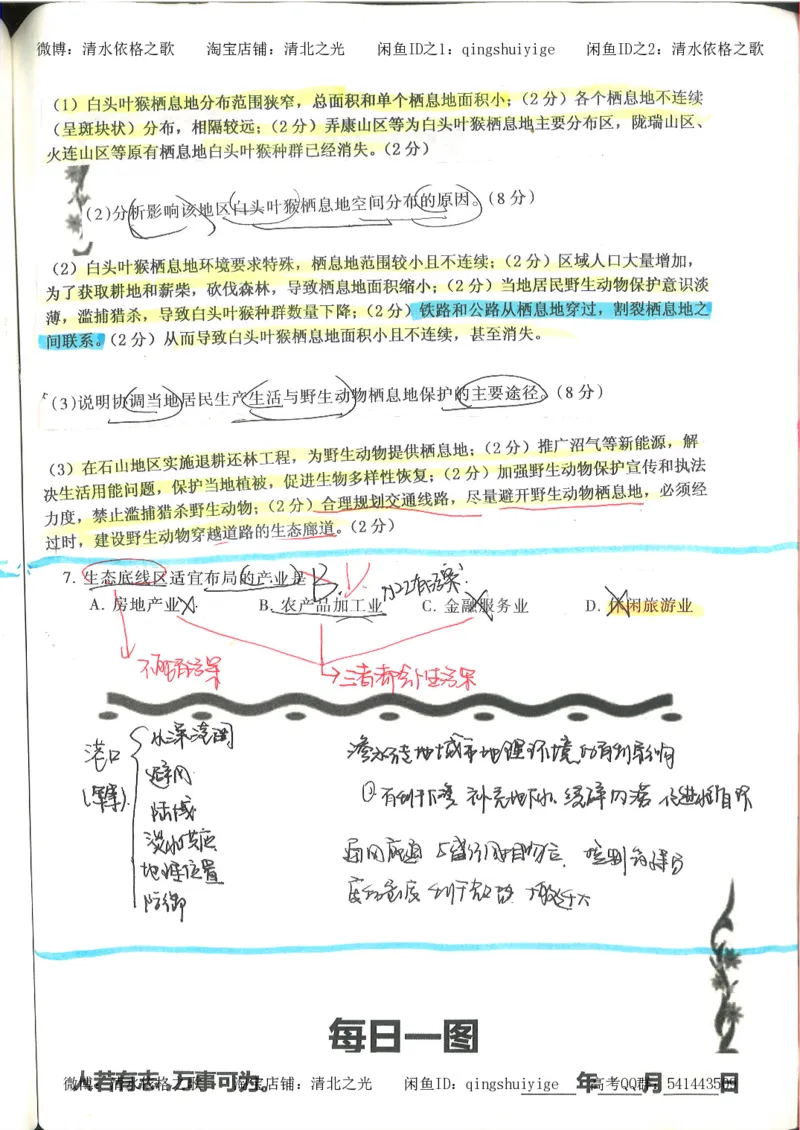 微博：清水依格之歌 淘宝店铺：清北之光 闲鱼ID之1：qingshuiyige 闲鱼ID之2：清水依格之歌
（1）白头叶猴栖息地分布范围狭窄，总面积和单个栖息地面积小；（2分）各个栖息地不连续
（呈斑块状）分布，相隔较远；（2分）弄廉山区等为白头叶猴栖息地主要分布区，陇瑞山区、
火连山区等原有栖息地白头叶猴种群已经消失。（2分）
(2)分析影响该地区白头叶猴栖息地空间分布的原因。（8分）
（2）白头叶猴栖息地环境要求特殊，栖息地范围较小且不连续；（2分）区域人口大量增加，
为了获取耕地和薪柴，砍伐森林，导致栖息地面积缩小；（2分）当地居民野生动物保护意识淡
薄，滥捕猎杀，导致白头叶猴种群数量下降；（2分）铁路和公路从栖息地穿过，割裂栖息地之
间联系。（2分）从而导致白头叶猴栖息地面积小且不连续，甚至消失。
(3)说明协调当地居民生产生活与野生动物栖息地保护的主要途径。（8分）
（3）在石山地区实施退耕还林工程，为野生动物提供栖息地；（2分）推广沼气等新能源，解
决生活用能问题，保护当地植被，促进生物多样性恢复；（2分）加强野生动物保护宣传和执法
力度，禁止滥捕猎杀野生动物；（2分）合理规划交通线路，尽量避开野生动物栖息地，必须经
过时，建设野生动物穿越道路的生态廊道。（2分）
7. 生态底线区适宜布局的产业是 B.
A. 房地产业 B. 农产品加工业 C. 金融服务业 D. 休闲旅游业
不能有污染 三者都会产生污染
港口
水深港阔
避风
陆域
淡水供应
地理位置
防御
每日一图
人若有志，万事可为。 年 月 日
微博：清水依格之歌 淘宝店铺：清北之光 闲鱼ID：qingshuiyige 高考QQ群：541443509